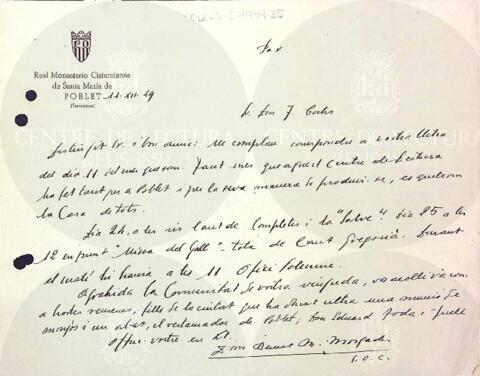 CLR-5-5-1949-25
Pax
Real Monasterio Cisterciense
de Santa María de
POBLET 11-XII-49
(Tarragona)
Sr. Don J.
Distingit Sr. i bon amic: Me complau correspondre a vostra lletra
del dia 11 del mes que som. Tant més que aquest Centre de Lectura
ha fet tant per a Poblet i per la seva manera de produir-se, es quelcom
la Casa de tots.
Dia 24, a les sis cant de Completes i la "Salve". Dia 25 a les
12 en punt "Missa del Gall" - tota de Cant Gregorià. Durant
el matí hi haurà a les 11 Ofici Solemne.
Agrahida la Comunitat de vostra vinguda, vos acollirà com
a hostes, fills de la ciutat que ha donat ultra una munió de
monjos i un abat, el restaurador de Poblet, Don Eduard Toda i Güell
Offm. vostre en Xt.
Dom M.
S.O.C.
CENTRE DE LECTURA
REUS 1859
CENTRE DE LECTURA
REUS 1859